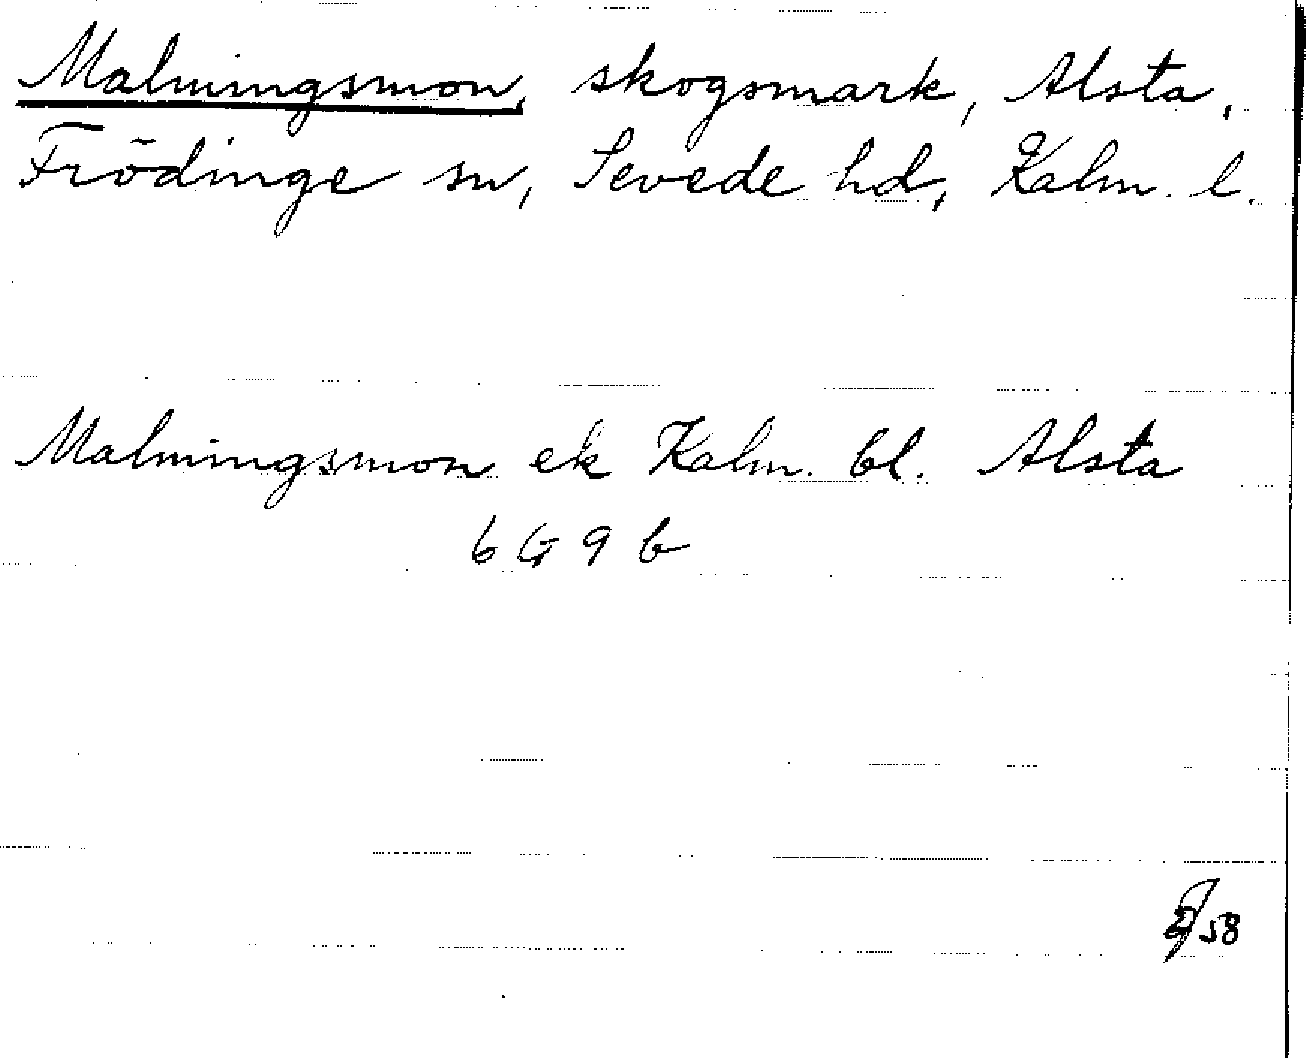 Malmingsmon, skogsmark, Alsta,
Frödinge sn, Sevede hd, Kalm. l.
Malmingsmon ek Kalm. bl. Alsta
6 G 9 b
58